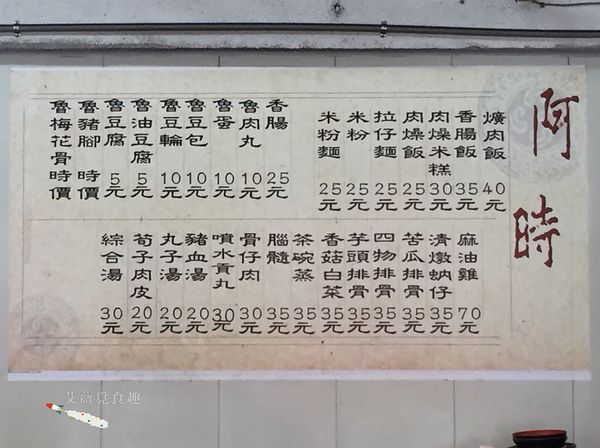 阿時
爌肉飯 40元
香腸飯 35元
肉燥米糕 30元
肉燥飯 25元
拉仔麵 25元
米粉 25元
米粉麵 25元
香腸 25元
魯肉丸 10元
魯蛋 10元
魯豆包 10元
魯豆輪 10元
魯油豆腐 5元
魯豆腐 5元
魯豬腳 時價
魯梅花骨 時價
麻油雞 70元
清燉蚋仔 35元
苦瓜排骨 35元
四物排骨 35元
芋頭排骨 35元
香菇白菜 35元
茶碗蒸 35元
腦髓 35元
骨仔肉 30元
噴水貢丸 30元
豬血湯 20元
丸子湯 20元
荀子肉皮 20元
綜合湯 30元
艾薇覓食趣